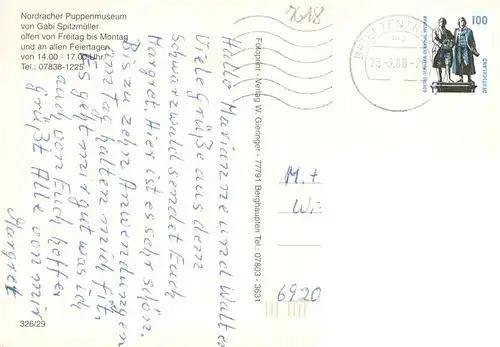 Nordracher Puppenmuseum
von Gabi Spitzmüller
offen von Freitag bis Montag
und an allen Feiertagen
von 14.00 - 17.00 Uhr.
Tel.: 07838-1225
7618
Hallo Marianne und Walter
Viele Grüße aus dem
Schwarzwald sendet Euch
Margret Hier ist es sehr schön.
Bis zu zehn Anwendungen
am Tag halten mich fit.
Es geht mir gut was ich
auch von Euch hoffe
grüßt Alle von mir
Margret
Fotoprint-Verlag W. Gieringer - 77791 Berghaupten Tel.: 07803 - 3631
BRIEFZENTRUM
100
DEUTSCHLAND
M. +
W.
6920
326/29